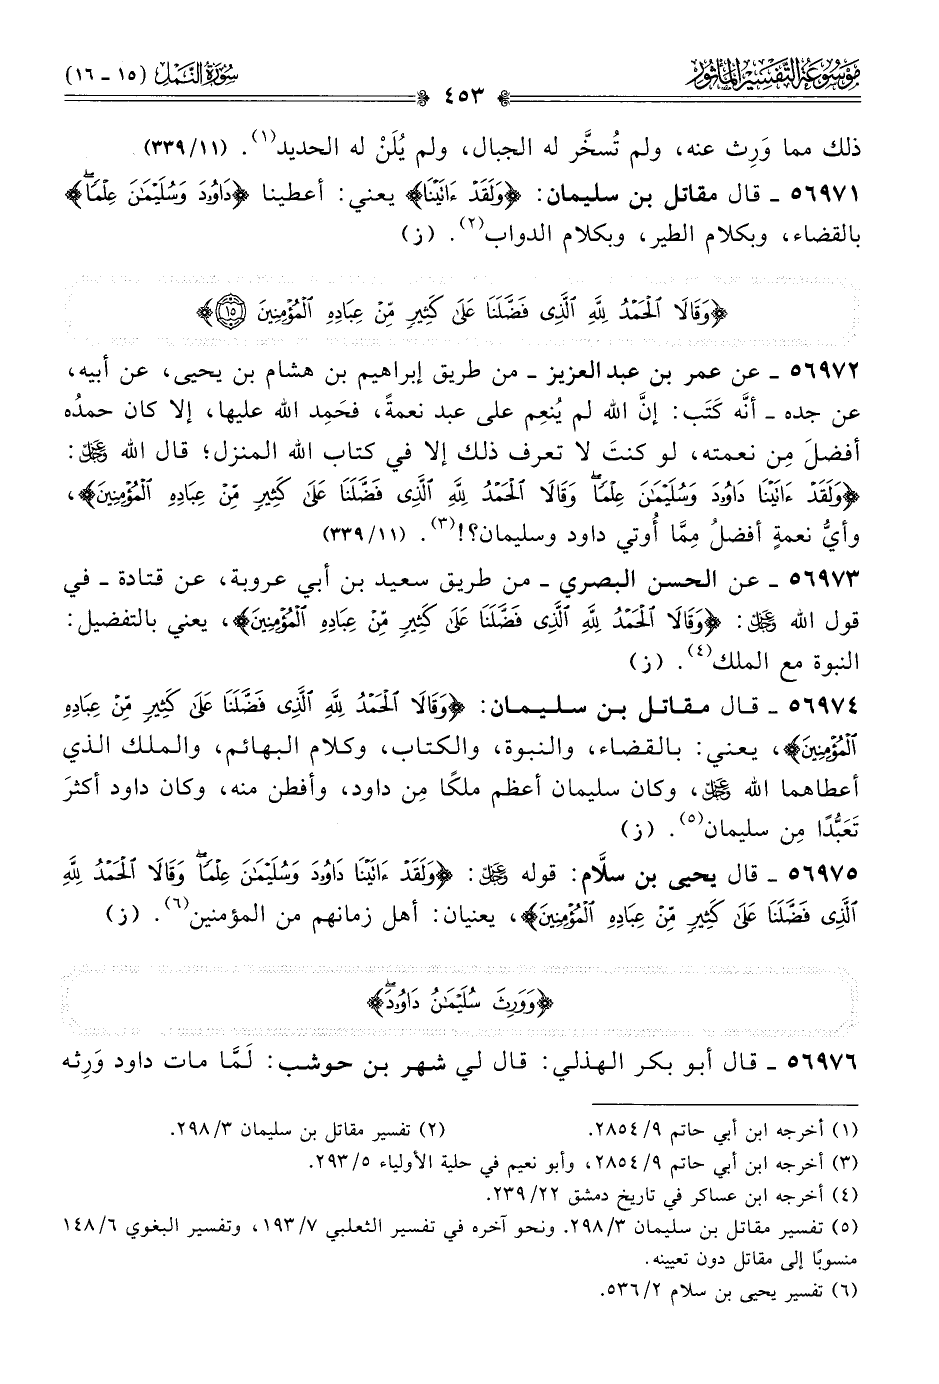 موسوعة التفسير المأثور
سورة النمل (١٥ - ١٦)
٤٥٣
ذلك مما وَرِث عنه، ولم تُسخَّر له الجبال، ولم يُلَنْ له الحديد(١). (٣٣٩/١١)
٥٦٩٧١ - قال مقاتل بن سليمان: ﴿وَلَقَدْ ءَاتَيْنَا﴾ يعني: أعطينا ﴿دَاوُدَ وَسُلَيْمَٰنَ عِلْمًاۖ﴾
بالقضاء، وبكلام الطير، وبكلام الدواب(٢). (ز)
﴿وَقَالَا ٱلْحَمْدُ لِلَّهِ ٱلَّذِى فَضَّلَنَا عَلَىٰ كَثِيرٍ مِّنْ عِبَادِهِ ٱلْمُؤْمِنِينَ ١٥﴾
٥٦٩٧٢ - عن عمر بن عبد العزيز - من طريق إبراهيم بن هشام بن يحيى، عن أبيه،
عن جده - أنَّه كَتَب: إنَّ الله لم يُنعِم على عبد نعمةً، فحَمِد الله عليها، إلا كان حمدُه
أفضلَ مِن نعمته، لو كنتَ لا تعرف ذلك إلا في كتاب الله المنزل؛ قال الله ﷿:
﴿وَلَقَدْ ءَاتَيْنَا دَاوُدَ وَسُلَيْمَٰنَ عِلْمًاۖ وَقَالَا ٱلْحَمْدُ لِلَّهِ ٱلَّذِى فَضَّلَنَا عَلَىٰ كَثِيرٍ مِّنْ عِبَادِهِ ٱلْمُؤْمِنِينَ﴾،
وأيُّ نعمةٍ أفضلُ مِمَّا أُوتي داود وسليمان؟!(٣). (٣٣٩/١١)
٥٦٩٧٣ - عن الحسن البصري - من طريق سعيد بن أبي عروبة، عن قتادة - في
قول الله ﷿: ﴿وَقَالَا ٱلْحَمْدُ لِلَّهِ ٱلَّذِى فَضَّلَنَا عَلَىٰ كَثِيرٍ مِّنْ عِبَادِهِ ٱلْمُؤْمِنِينَ﴾، يعني بالتفضيل:
النبوة مع الملك(٤). (ز)
٥٦٩٧٤ - قال مقاتل بن سليمان: ﴿وَقَالَا ٱلْحَمْدُ لِلَّهِ ٱلَّذِى فَضَّلَنَا عَلَىٰ كَثِيرٍ مِّنْ عِبَادِهِ
ٱلْمُؤْمِنِينَ﴾، يعني: بالقضاء، والنبوة، والكتاب، وكلام البهائم، والملك الذي
أعطاهما الله ﷿، وكان سليمان أعظم ملكًا مِن داود، وأفطن منه، وكان داود أكثرَ
تَعَبُّدًا مِن سليمان(٥). (ز)
٥٦٩٧٥ - قال يحيى بن سلَّام: قوله ﷿: ﴿وَلَقَدْ ءَاتَيْنَا دَاوُدَ وَسُلَيْمَٰنَ عِلْمًاۖ وَقَالَا ٱلْحَمْدُ لِلَّهِ
ٱلَّذِى فَضَّلَنَا عَلَىٰ كَثِيرٍ مِّنْ عِبَادِهِ ٱلْمُؤْمِنِينَ﴾، يعنيان: أهل زمانهم من المؤمنين(٦). (ز)
﴿وَوَرِثَ سُلَيْمَٰنُ دَاوُدَۖ﴾
٥٦٩٧٦ - قال أبو بكر الهذلي: قال لي شهر بن حوشب: لَمَّا مات داود وَرِثه
(١) أخرجه ابن أبي حاتم ٩/ ٢٨٥٤. (٢) تفسير مقاتل بن سليمان ٣/ ٢٩٨.
(٣) أخرجه ابن أبي حاتم ٩/ ٢٨٥٤، وأبو نعيم في حلية الأولياء ٥/ ٢٩٣.
(٤) أخرجه ابن عساكر في تاريخ دمشق ٢٢/ ٢٣٩.
(٥) تفسير مقاتل بن سليمان ٣/ ٢٩٨. ونحو آخره في تفسير الثعلبي ٧/ ١٩٣، وتفسير البغوي ٦/ ١٤٨
منسوبًا إلى مقاتل دون تعيينه.
(٦) تفسير يحيى بن سلام ٢/ ٥٣٦.